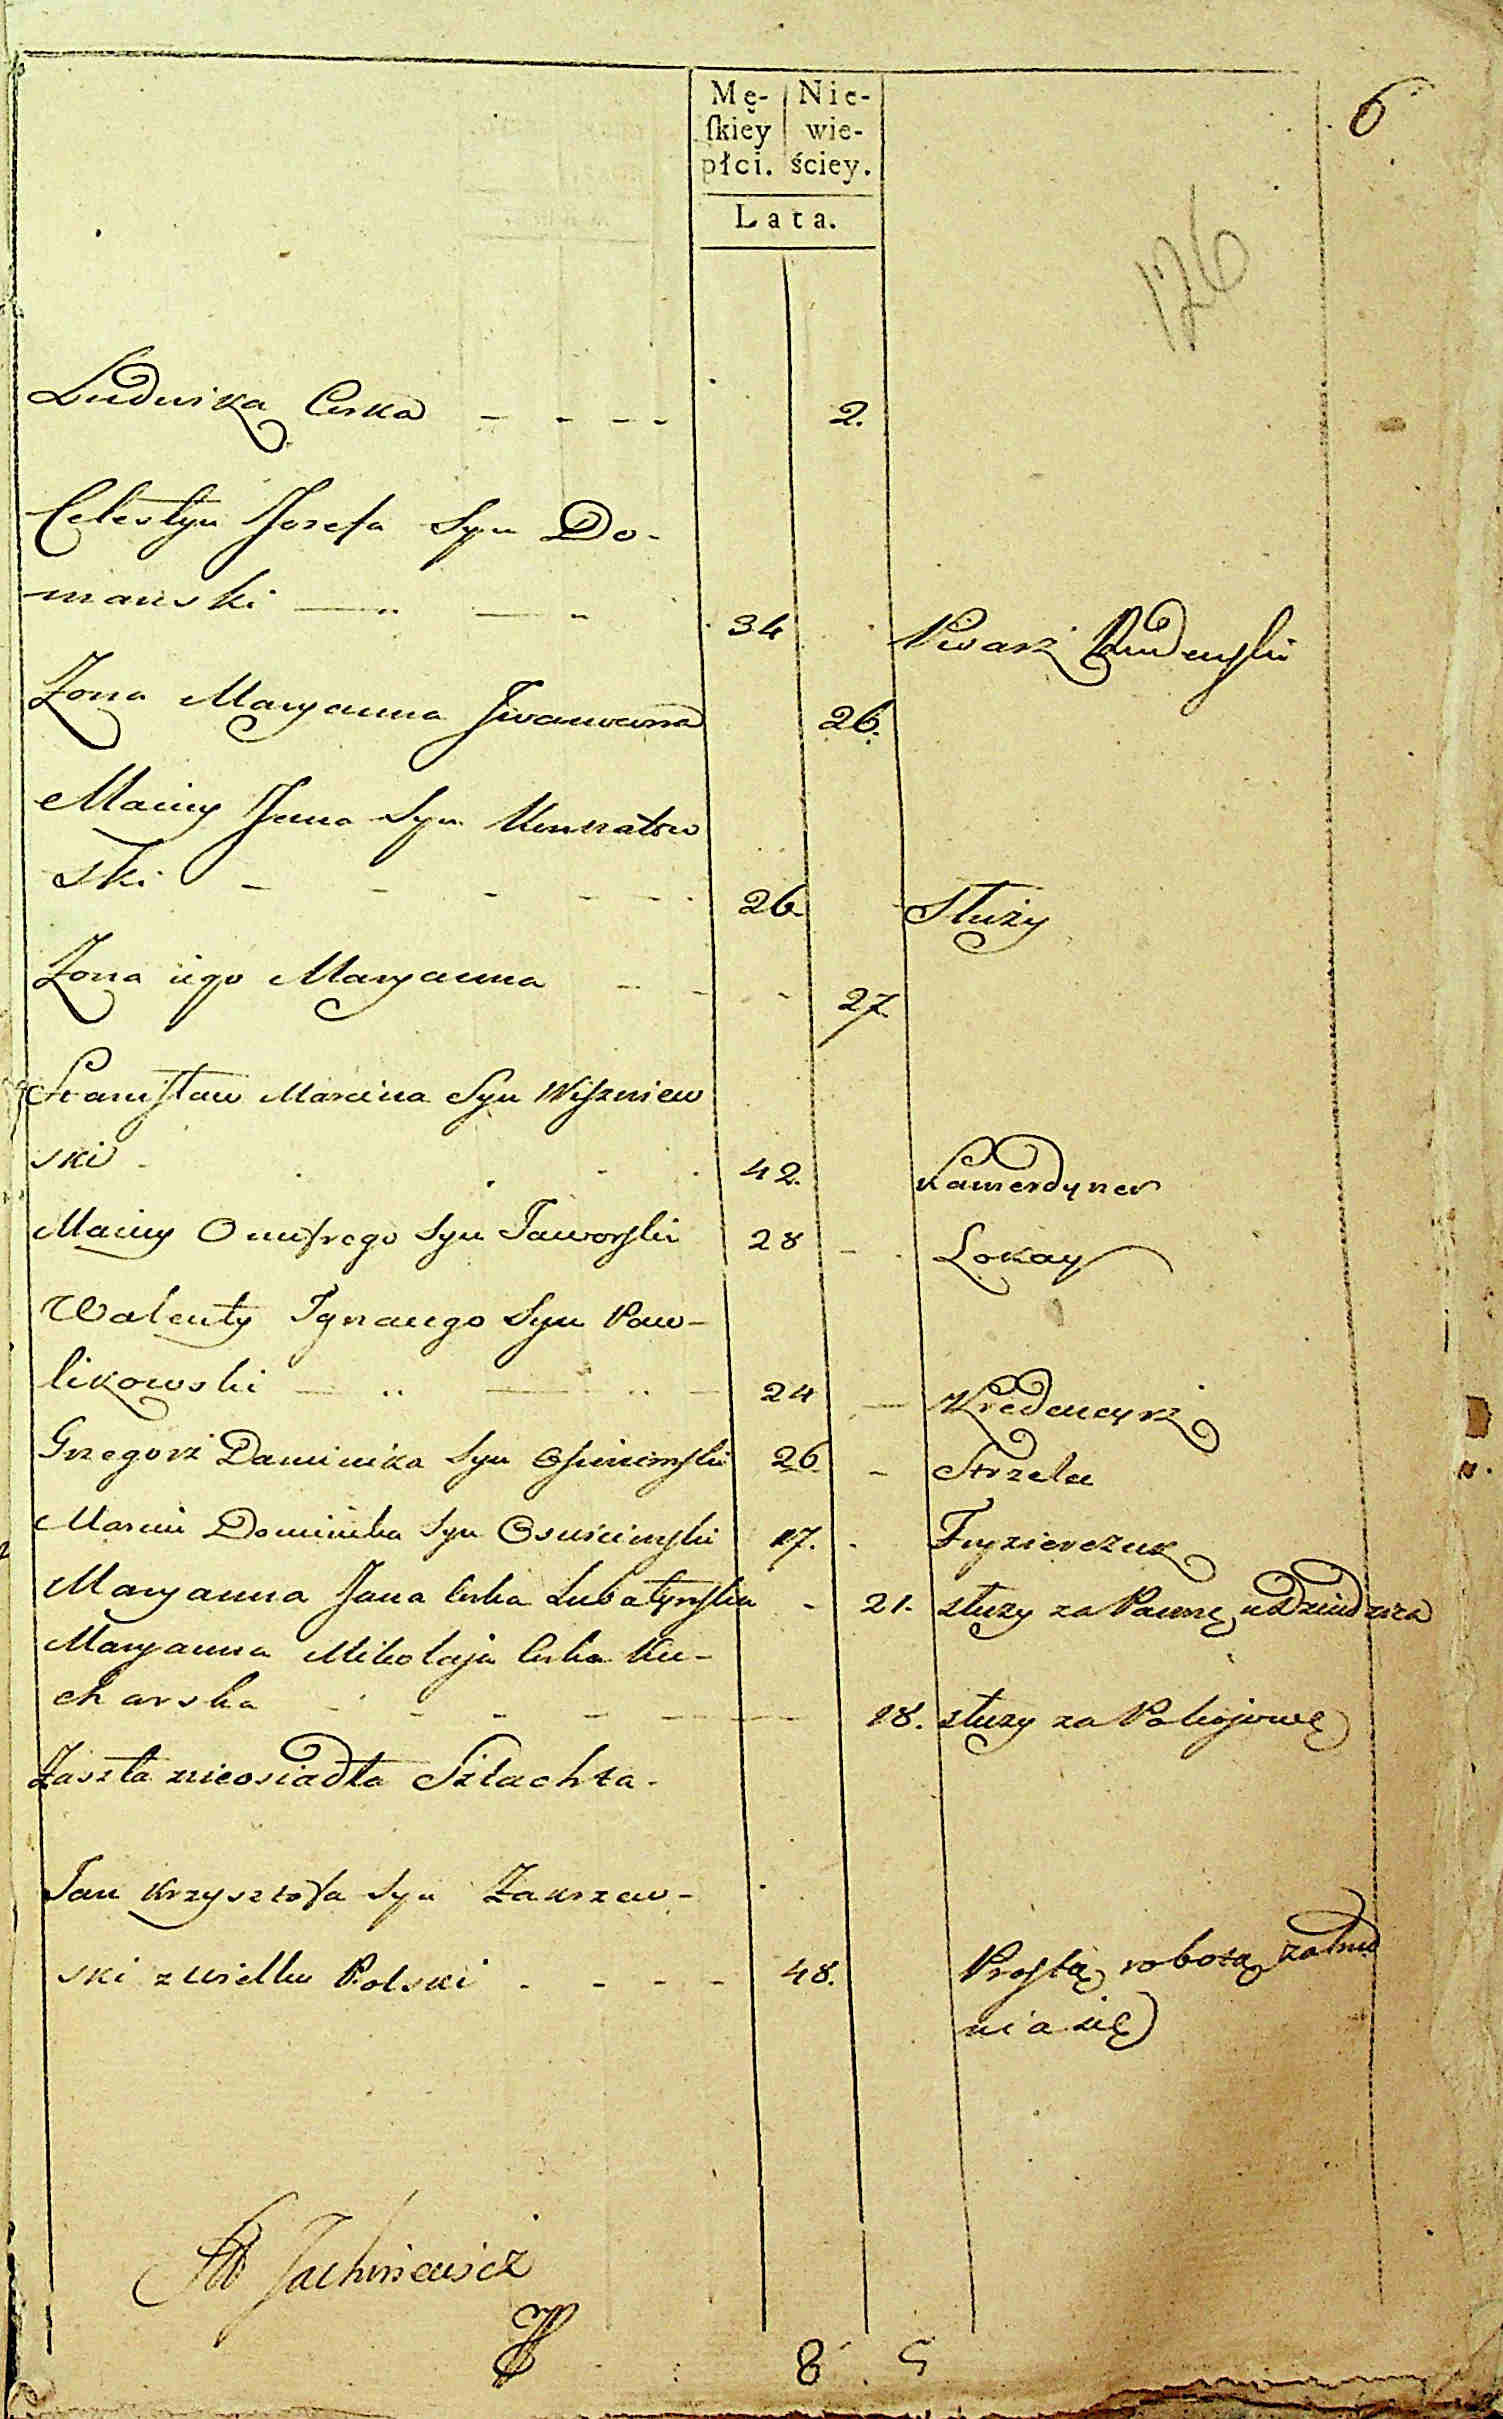 6
Mę- Nie-
ſkiey wie-
płci. ściey.
Lata.
126
Ludwika Curka - - - - 2.
Celestyn Jozefa Syn Do-
mański 34 Pisarz
Zona Maryanna 26.
Maciey Jana Syn
ski - - - - 26. Służy
Zona iego Maryanna - - - 27.
Stanisław Marcina Syn Wiszniew
ski 42. Kamerdyner
Maciey Onufrego Syn Jaworski 28 - Lokay
Walenty Ignacego Syn Paw-
likowski 24 - Kredencyrz
Grzegorz Daminika Syn 26 - Strzelec
Marcin Dominika Syn 17. Fryzierczuk
Maryanna Jana Curka Lubatynska - 21. służy za Pannę u Dziedzica
Maryanna Mikołaja Curka Ku-
charska - - - - 18. służy za Pokojowę
Zaszła nieosiadła Szlachta.
Jan Krzysztofa Syn Zakrzew-
ski z Wielku Polski - - - - 48. Prostą robotą zatrud
nia się
Jachniewicz
8 5